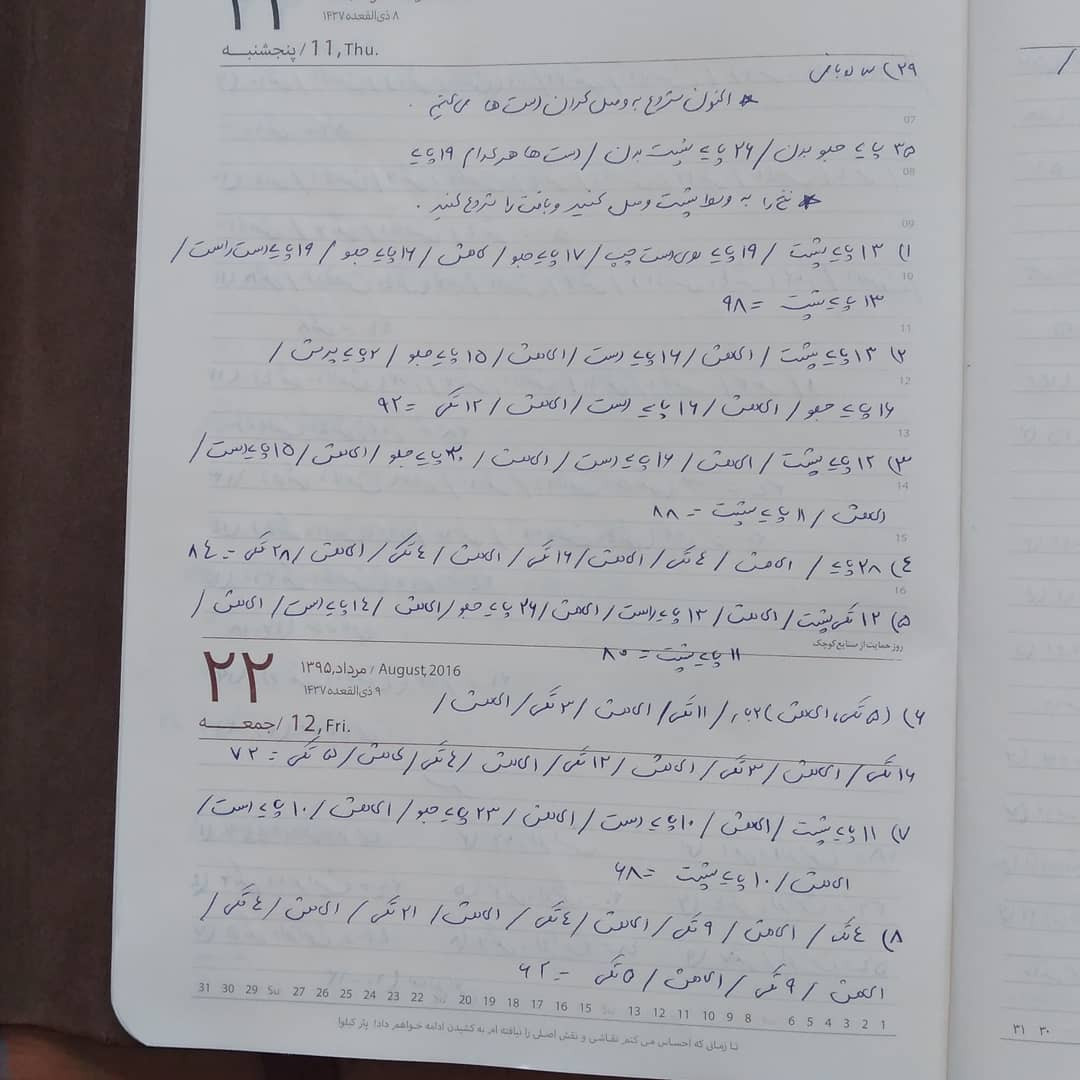 ۸ ذی‌القعده ۱۴۳۷
پنجشنبه / 11, Thu.
۲۹)
* اکنون شروع به وصل کردن دست ها می‌کنیم.
07
۳۵ پایه جلو بدن / ۲۶ پایه پشت بدن / دست ها هر کدام ۱۹ پایه
08
* نخ را به وسط پشت وصل کنید و بافت را شروع کنید.
09
۱) ۱۳ پایه پشت / ۱۹ پایه روی دست چپ / ۱۷ پایه جلو / کاهش / ۱۶ پایه جلو / ۱۹ پایه دست راست /
10
۱۳ پایه پشت = ۹۸
11
۲) ۱۳ پایه پشت / ۱کاهش / ۱۶ پایه دست / ۱کاهش / ۱۵ پایه جلو / ۲ پایه پرش /
12
۱۶ پایه جلو / ۱کاهش / ۱۶ پایه دست / ۱کاهش / ۱۲ تکی = ۹۲
13
۳) ۱۲ پایه پشت / ۱کاهش / ۱۶ پایه دست / ۱کاهش / ۳۰ پایه جلو / ۱کاهش / ۱۵ پایه دست /
14
۱کاهش / ۱۱ پایه پشت = ۸۸
15
۴) ۲۸ پایه / ۱کاهش / ۴ تکی / ۱کاهش / ۱۶ تکی / ۱کاهش / ۴ تکی / ۱کاهش / ۲۸ تکی = ۸۴
16
۵) ۱۲ تکی پشت / ۱کاهش / ۱۳ پایه دست / ۱کاهش / ۲۶ پایه جلو / ۱کاهش / ۱۴ پایه دست / ۱کاهش /
روز حمایت از صنایع کوچک
۱۱ پایه پشت = ۸۰
۲۲
مرداد, ۱۳۹۵ / August, 2016
۹ ذی‌القعده ۱۴۳۷
جمعه / 12, Fri.
۶) (۵ تکی، ۱کاهش) ۲بار / ۱۱ تکی / ۱کاهش / ۳ تکی / ۱کاهش /
۱۶ تکی / ۱کاهش / ۳ تکی / ۱کاهش / ۱۲ تکی / ۱کاهش / ۴ تکی / کاهش / ۵ تکی = ۷۲
۷) ۱۱ پایه پشت / ۱کاهش / ۱۰ پایه دست / ۱کاهش / ۲۳ پایه جلو / ۱کاهش / ۱۰ پایه دست /
۱کاهش / ۱۰ پایه پشت = ۶۸
۸) ۴ تک / ۱کاهش / ۹ تکی / ۱کاهش / ۴ تکی / ۱کاهش / ۲۱ تکی / ۱کاهش / ۴ تکی /
۱کاهش / ۹ تکی / ۱کاهش / ۵ تکی = ۶۲
31 30 29 Su 27 26 25 24 23 22 20 19 18 17 16 15 13 12 11 10 9 8 6 5 4 3 2 1
تا زمانی که احساس می کنم نقاشی و نقش اصلی را نیافته ام به کشیدن ادامه خواهم داد!
۳۱ ۳۰